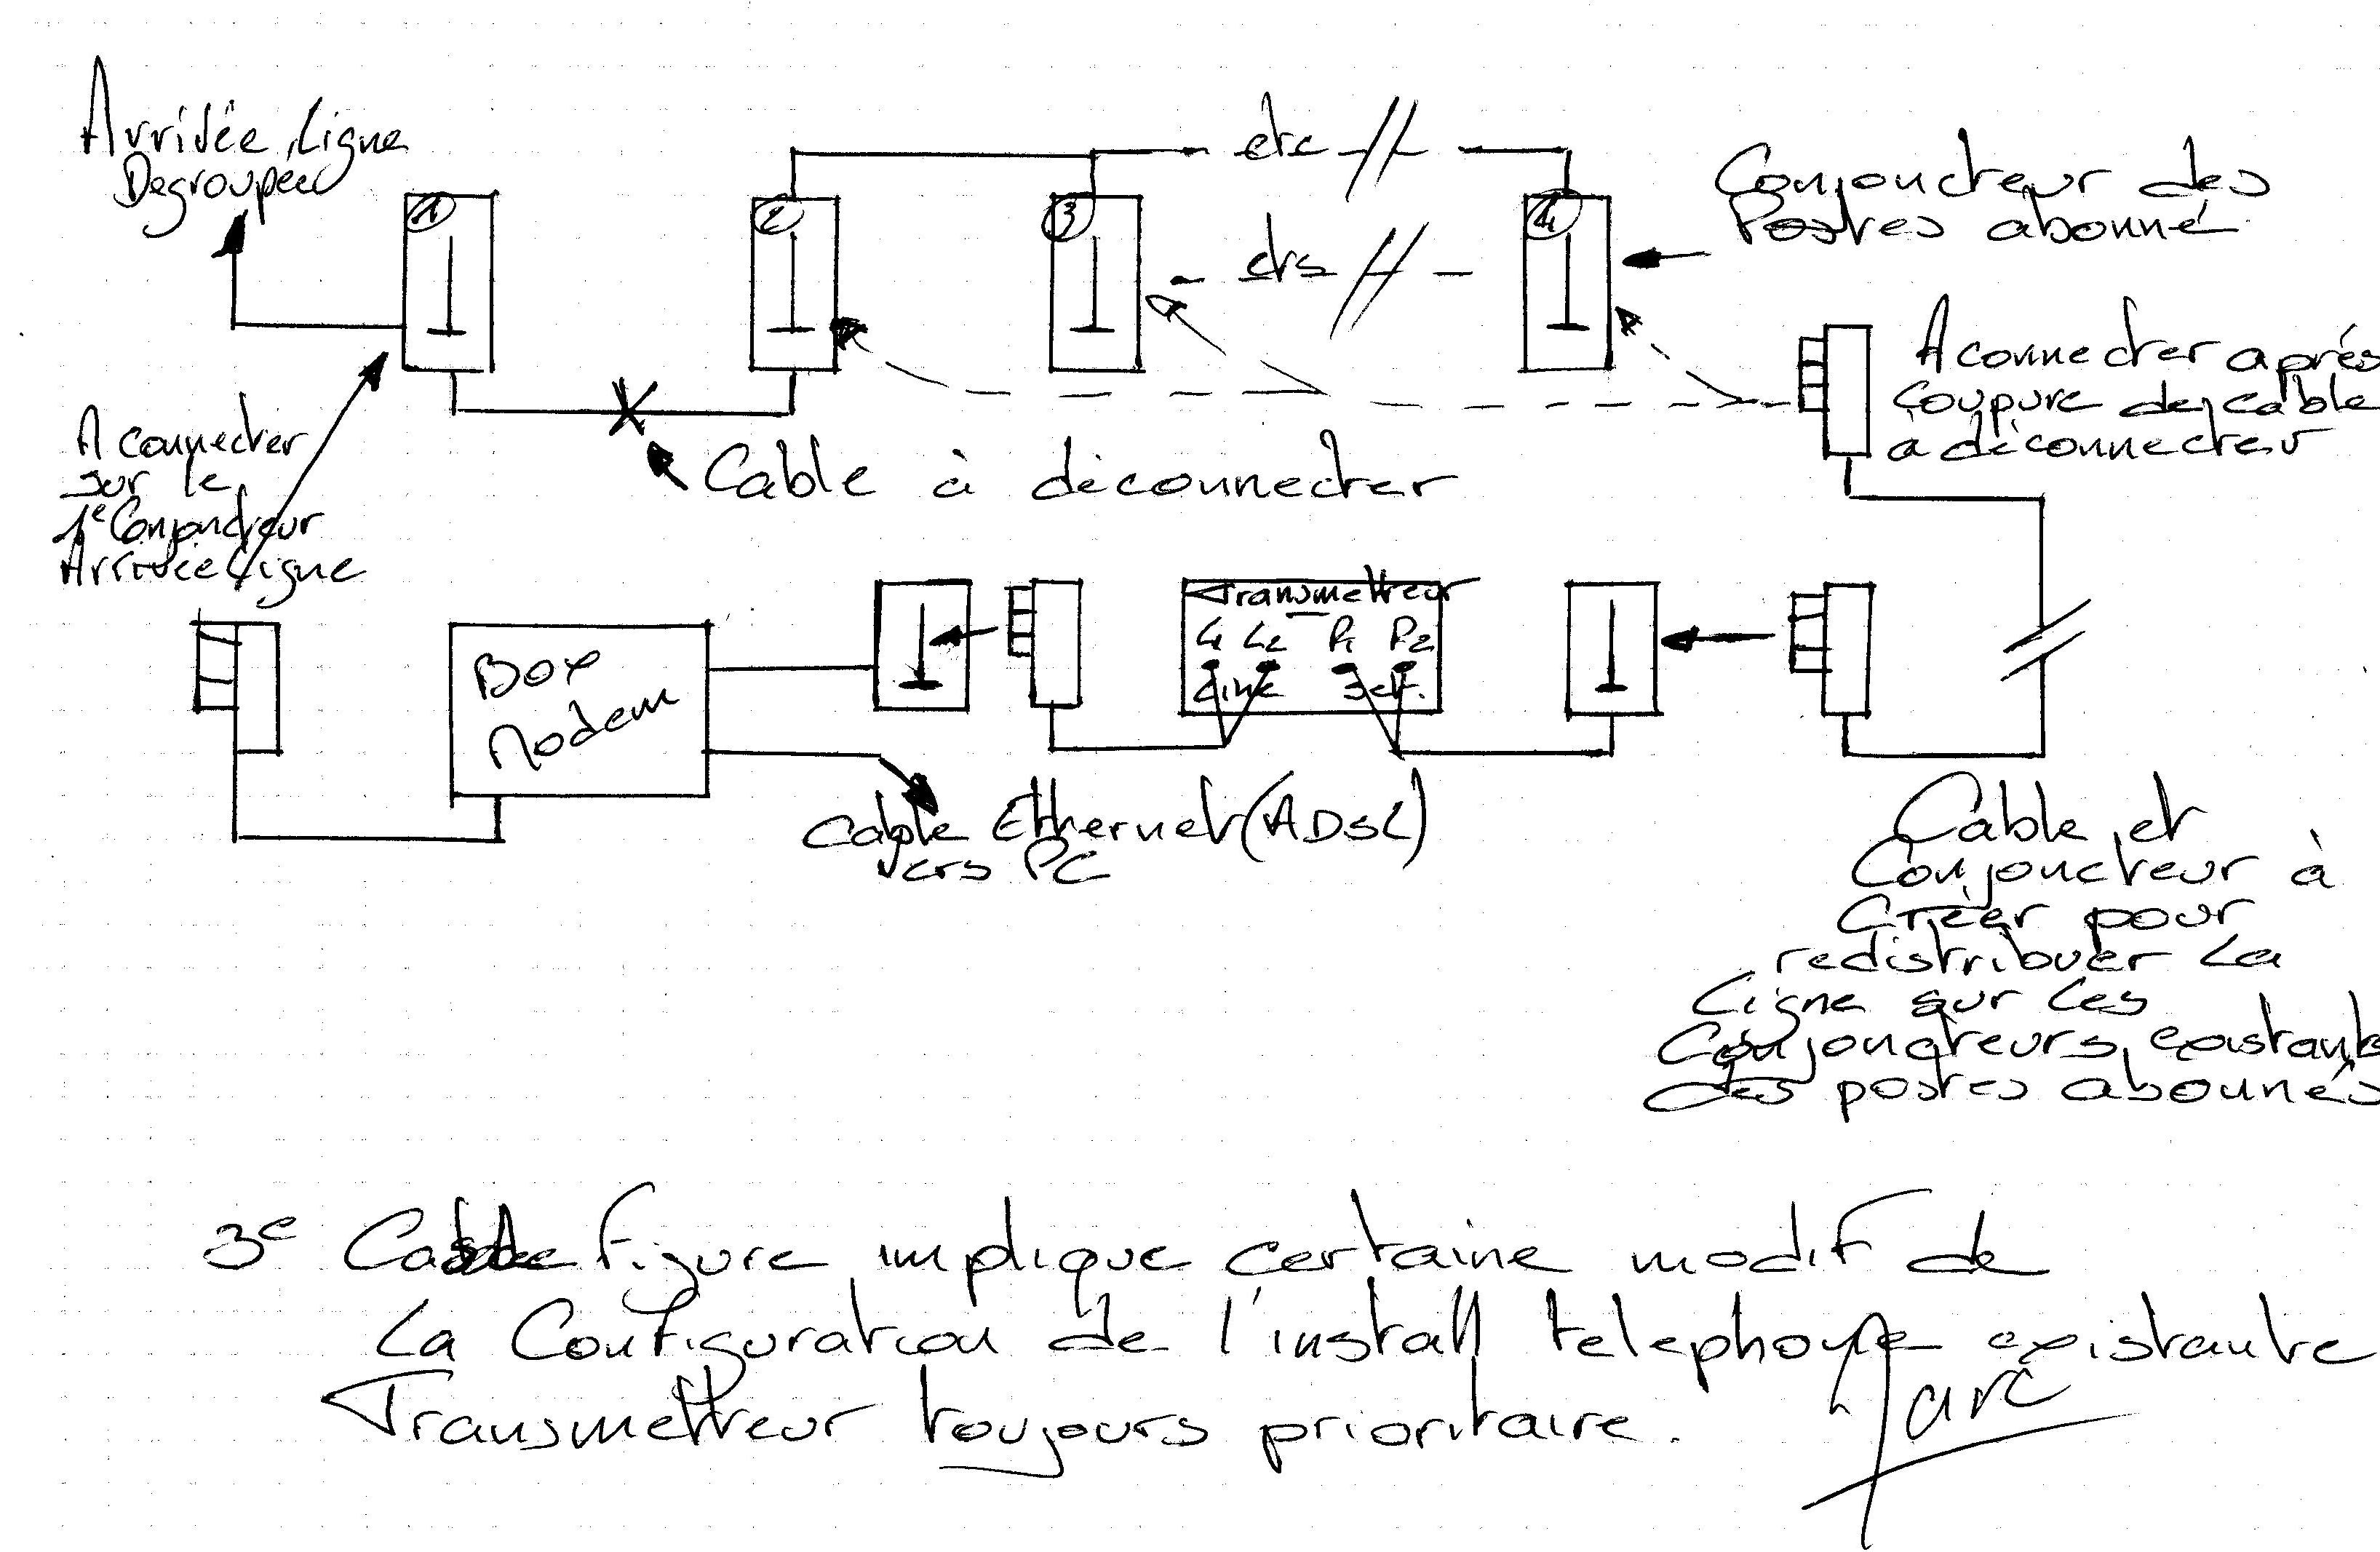 Arrivée Ligne
Dégroupée
1
2
3
4
etc
etc
Conjoncteur des
Postes abonné.
A connecter après
coupure de cable
à déconnecter
A connecter
sur le
1e Conjoncteur
Arrivée Ligne
Cable à déconnecter
Box
Modem
Transmetteur
L1 L2 P1 P2
Cable Ethernet (ADSL)
vers PC
Cable et
Conjoncteur à
Créer pour
redistribuer La
Ligne sur Les
Conjoncteurs existants
des postes abonnés
3e Cas de Figure implique certaine modif de
La Configuration de l'install telephone existante
Transmetteur toujours prioritaire.
Marc